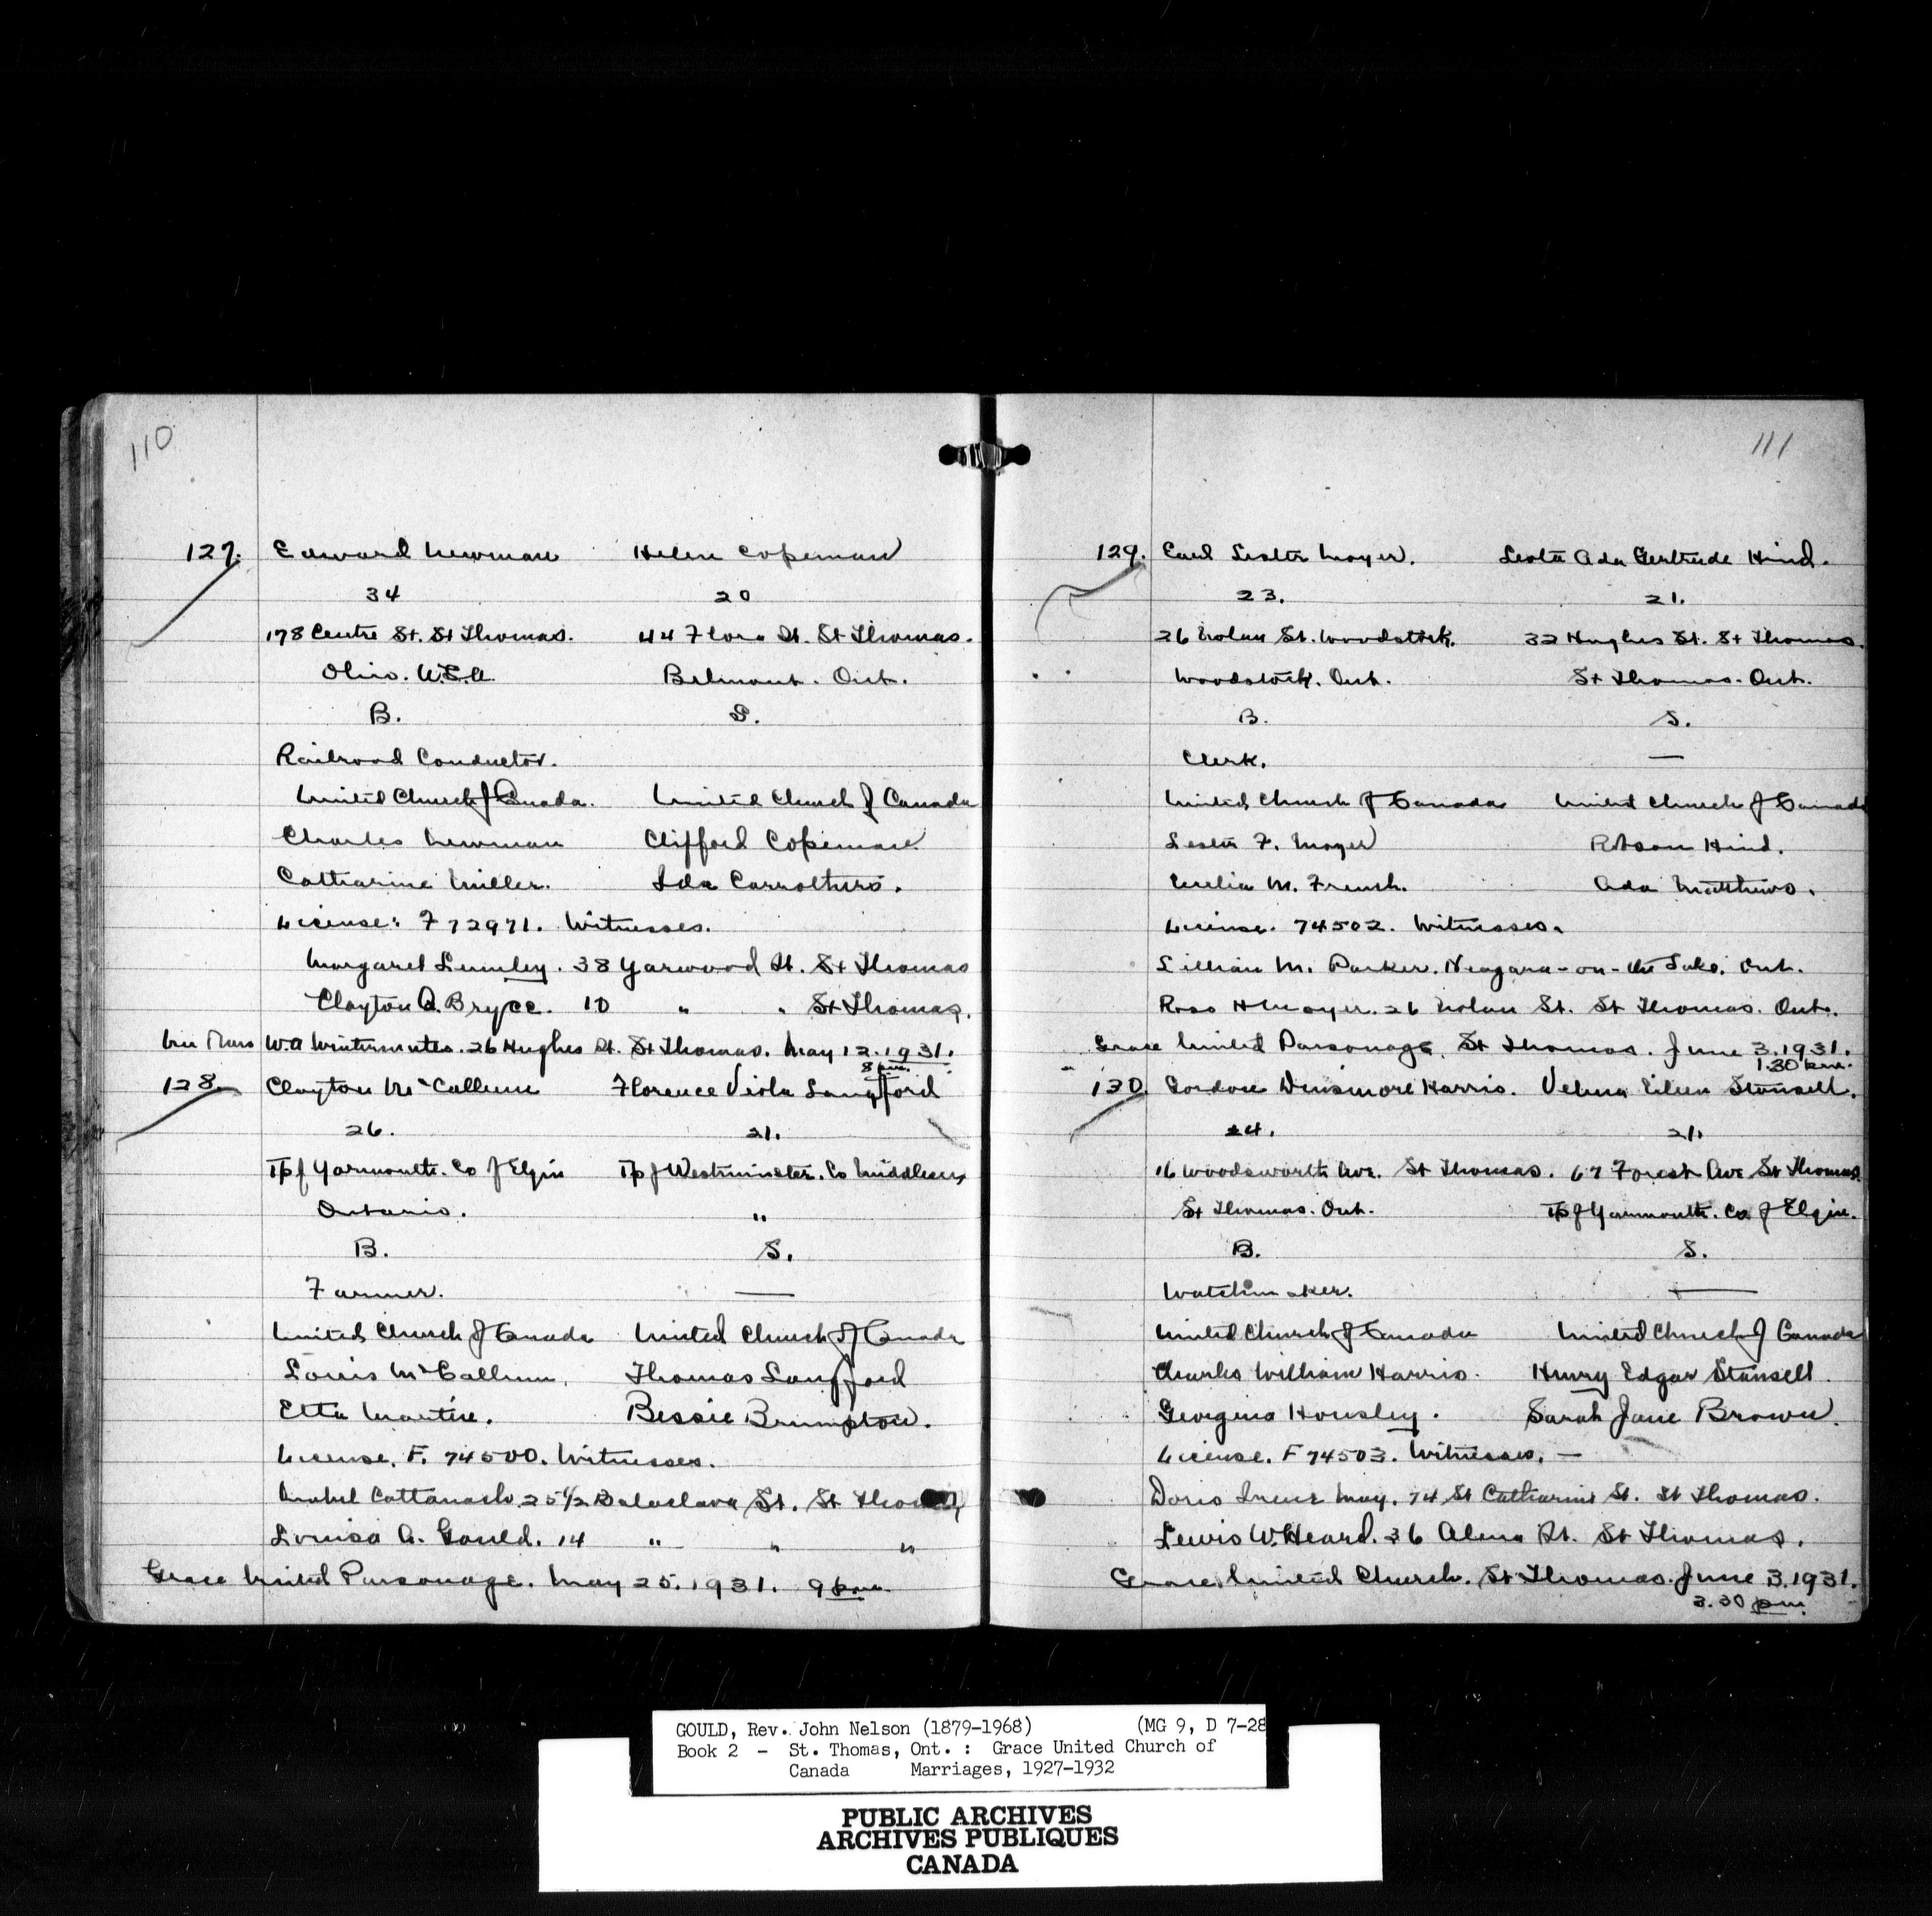 110
127. Edward Newman Helen Copeman
34 20
178 Centre St. St Thomas. 44 Flora St. St Thomas.
Ohio. U.S.A. Belmont. Ont.
B. S.
Railroad Conductor.
United Church of Canada. United Church of Canada
Charles Newman Clifford Copeman
Catharine Miller. Ida Carrothers.
License: F 72971. Witnesses.
Margaret Lumley. 38 Yarwood St. St Thomas
Clayton A. Bryce. 10 " " St Thomas.
W.A Wintermutes. 26 Hughes St. St Thomas. May 12. 1931.
8 p.m.
128. Clayton McCallum Florence Viola Langford
26. 21.
Tp of Yarmouth. Co of Elgin Tp of Westminster. Co Middlesex
Ontario. "
B. S.
Farmer. —
United Church of Canada United Church of Canada
Louis McCallum, Thomas Langford
Etta Martin. Bessie Brumpton.
License. F. 74500. Witnesses.
Mabel Cattanach 25 1/2 Balaclava St. St Thomas
Louisa A. Gould. 14 " " "
Grace United Parsonage. May 25. 1931. 9 p.m.
111
129. Earl Lester Moyer. Leota Ada Gertrude Hind.
23. 21.
26 Nolan St. Woodstock. 32 Hughes St. St Thomas.
Woodstock. Ont. St Thomas. Ont.
B. S.
Clerk. —
United Church of Canada United Church of Canada
Lester F. Moyer Robson Hind.
M. French. Ada Matthews.
License. 74502. Witnesses.
Lillian M. Parker. Niagara-on-the Lake. Ont.
Ross H Moyer. 26 Nolan St. St Thomas. Ont.
Grace United Parsonage, St Thomas. June 3. 1931.
1.30 p.m.
130 Gordon Dinsmore Harris. Velma Eileen Stansell.
24. 21.
16 Woodsworth Ave. St Thomas. 67 Forest Ave St Thomas.
St Thomas. Ont. Tp of Yarmouth. Co. of Elgin.
B. S.
Watchmaker. —
United Church of Canada United Church of Canada
Charles William Harris. Henry Edgar Stansell.
Georgina Housley. Sarah Jane Brown.
License. F 74503. Witnesses. —
Doris Irene May. 74 St Catharine St. St Thomas.
Lewis W. Heard. 36 Alma St. St Thomas.
Grace United Church. St Thomas. June 3. 1931.
3.30 p.m.
GOULD, Rev. John Nelson (1879-1968) (MG 9, D 7-28
Book 2 - St. Thomas, Ont. : Grace United Church of
Canada Marriages, 1927-1932
PUBLIC ARCHIVES
ARCHIVES PUBLIQUES
CANADA